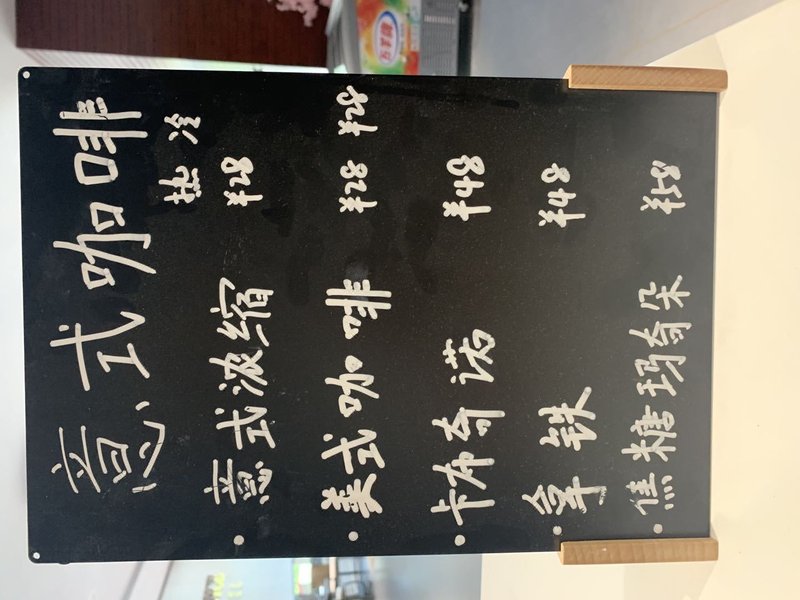 意式咖啡
热 冷
意式浓缩 ¥28
美式咖啡 ¥28 ¥28
卡布奇诺 ¥48
拿铁 ¥48
焦糖玛奇朵 ¥58